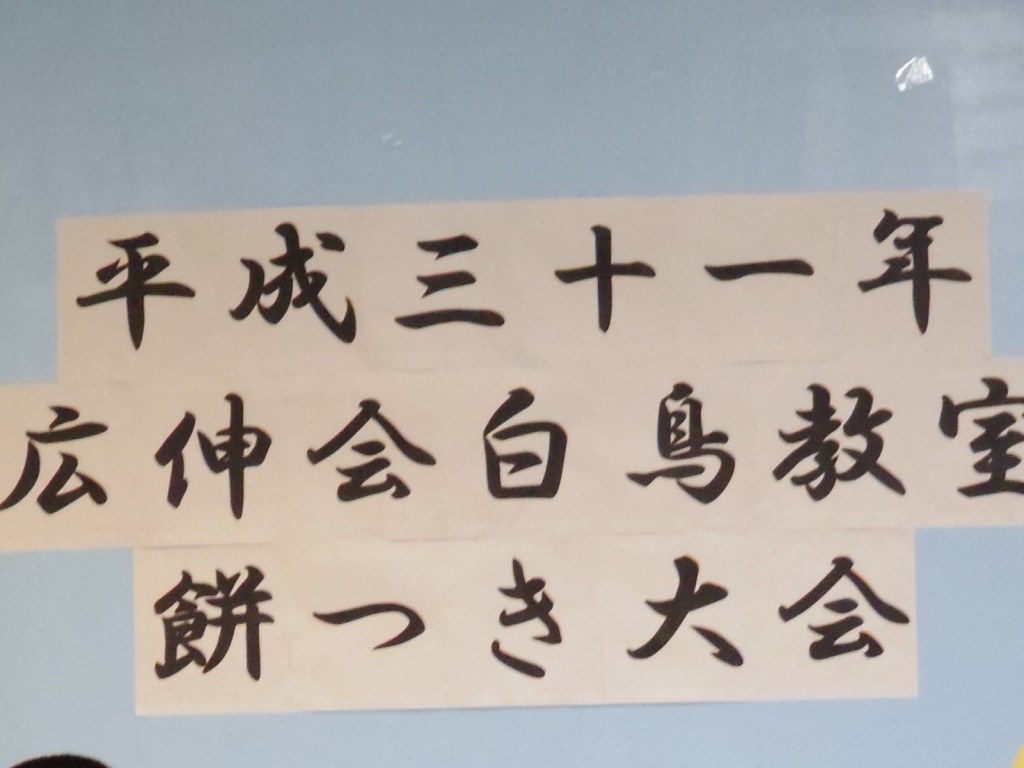 平成三十一年
広伸会白鳥教室
餅つき大会